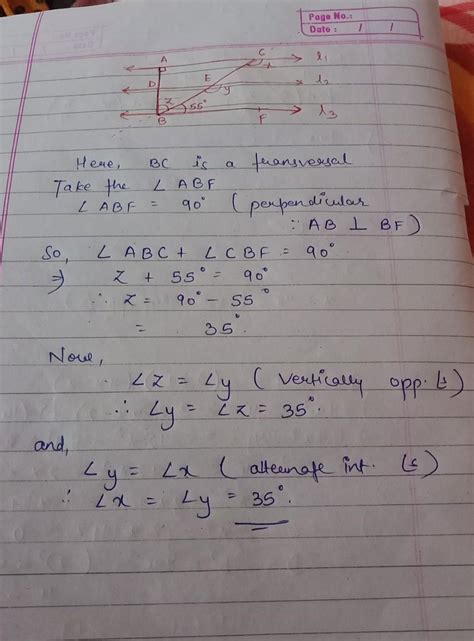 Page No.:
Date : / /
A C x l₁
D E y l₂
z 55° l₃
B F
Here, BC is a transversal
Take the ∠ ABF
∠ ABF = 90° ( perpendicular
∵ AB ⊥ BF )
So, ∠ ABC + ∠ CBF = 90°
⇒ z + 55° = 90°
∴ z = 90° - 55°
= 35°
Now,
∠z = ∠y ( Vertically opp. ∠s )
∴ ∠y = ∠z = 35°.
and,
∠y = ∠x ( alternate int. ∠s )
∴ ∠x = ∠y = 35°.